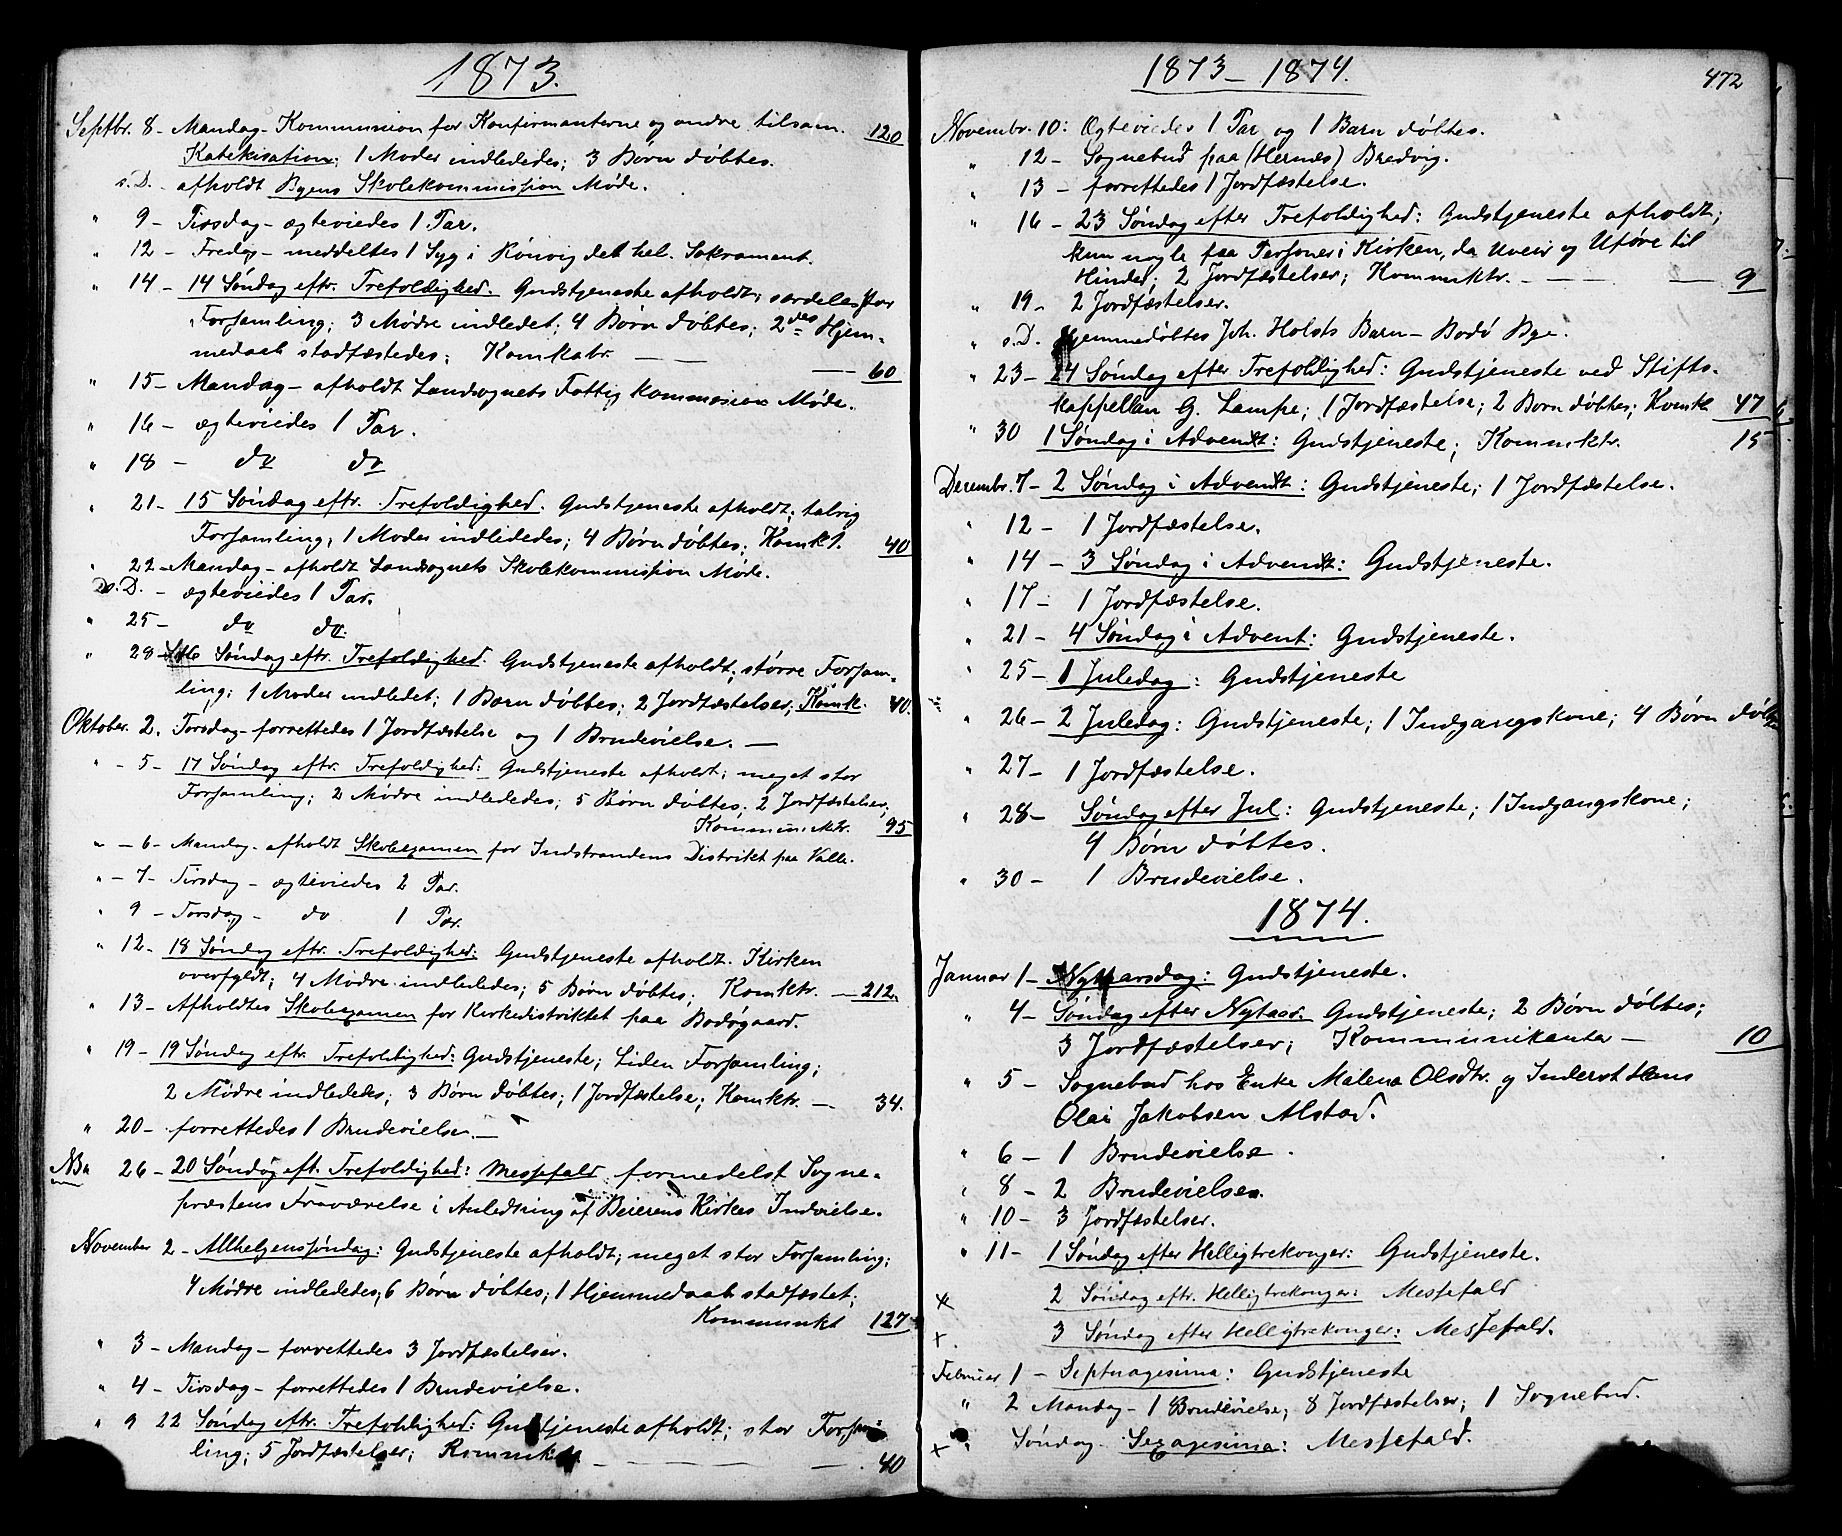 1873.
Septbr. 8 - Mandag - Kommunion for Konfirmanterne og andre tilsam. 120
Katekisation; 1 Moder indlededes; 3 Børn døbtes.
s.D. - afholdt Byens Skolekommission Møde.
" 9 - Tirsdag - ægteviedes 1 Par.
" 12 - Fredag - meddeltes 1 Syg i Rønvig det hel. Sakrament.
" 14 - 14 Søndag eftr. Trefoldighed. Gudstjeneste afholdt; særdeles stor
Forsamling; 3 Mødre indledet; 4 Børn døbtes; 2des Hjem-
medaab stadfæstedes; Komkabr. — — — 60
" 15 - Mandag - afholdt Landsognets Fattigkommission Møde.
" 16 - ægteviedes 1 Par.
" 18 - do do
" 21 - 15 Søndag eftr. Trefoldighed. Gudstjeneste afholdt; talrig
Forsamling; 1 Moder indlededes; 4 Børn døbtes; Komkt. 40
" 22 - Mandag - afholdt Landsognets Skolekommission Møde.
Ds. D. - ægteviedes 1 Par.
" 25 - do do.
" 28 - 16 Søndag eftr. Trefoldighed. Gudstjeneste afholdt; større Forsam-
ling; 1 Moder indledet; 1 Barn døbtes; 2 Jordfæstelser; Komk. 40.
Oktober. 2. Torsdag - forrettedes 1 Jordfæstelse og 1 Brudevielse. —
" - 5 - 17 Søndag eftr. Trefoldighed: Gudstjeneste afholdt; meget stor
Forsamling; 2 Mødre indlededes; 5 Børn døbtes; 2 Jordfæstelser;
Kommuniktr. 95
" - 6 - Mandag - afholdt Skolexamen for Indstrandens Distrikt paa Valle.
" - 7 - Tirsdag - ægteviedes 2 Par.
" 9 - Torsdag - do 1 Par.
" 12 - 18 Søndag eftr. Trefoldighed: Gudstjeneste afholdt. Kirken
overfyldt; 4 Mødre indlededes; 5 Børn døbtes; Komktr. — 212.
" 13 - Afholdtes Skolexamen for Kirkedistriktet paa Bodøgaard.
" 19 - 19 Søndag eftr. Trefoldighed: Gudstjeneste; Liden Forsamling;
2 Mødre indlededes; 3 Børn døbtes; 1 Jordfæstelse; Komktr. — 34.
" 20 - forrettedes 1 Brudevielse. —
NB " 26 - 20 Søndag eft. Trefoldighed: Messefald formedelst Sogne-
præstens Fraværelse i Anledning af Beierens Kirkes Indvielse.
November 2 - Allhelgenssøndag: Gudstjeneste afholdt; meget stor Forsamling;
4 Mødre indlededes; 6 Børn døbtes; 1 Hjemmedaab stadfæstet;
Kommunikt 127
" 3 - Mandag - forrettedes 3 Jordfæstelser.
" 4 - Tirsdag - forrettedes 1 Brudevielse.
" 9 22 Søndag eftr. Trefoldighed: Gudstjeneste afholdt; stor Forsam-
ling; 5 Jordfæstelser; — — — 40
1873 - 1874. 472
Novembr. 10: Ægteviedes 1 Par og 1 Barn døbtes.
" 12 - Sognebud paa (Hernæs) Bredvig.
" 13 - forrettedes 1 Jordfæstelse.
" 16 - 23 Søndag efter Trefoldighed: Gudstjeneste afholdt;
kun nogle faa Personer i Kirken, da Uveir og Uføre til
Hinder; 2 Jordfæstelser; Kommktr. — — — 9
" 19 - 2 Jordfæstelser.
" s.D. Hjemmedøbtes Joh. Holsts Barn - Bodø Bye.
" 23 - 24 Søndag efter Trefoldighed: Gudstjeneste ved Stifts-
kappellan G. Lampe; 1 Jordfæstelse; 2 Børn døbtes; Komk 47
" 30 1 Søndag i Advendt: Gudstjeneste; Kommktr. 15
Decembr. 7 - 2 Søndag i Advendt: Gudstjeneste; 1 Jordfæstelse.
" 12 - 1 Jordfæstelse.
" 14 - 3 Søndag i Advendt: Gudstjeneste.
" 17 - 1 Jordfæstelse.
" 21 - 4 Søndag i Advent: Gudstjeneste.
" 25 - 1 Juledag: Gudstjeneste
" 26 - 2 Juledag: Gudstjeneste; 1 Indgangskone; 4 Børn døbtes
" 27 - 1 Jordfæstelse.
" 28 - Søndag efter Jul: Gudstjeneste; 1 Indgangskone;
4 Børn døbtes.
" 30 - 1 Brudevielse.
1874.
Januar 1 - Nytaarsdag: Gudstjeneste.
" 4 - Søndag efter Nytaar. Gudstjeneste; 2 Børn døbtes;
3 Jordfæstelser; Kommunikanter — 10
" 5 - Sognebud hos Enke Malena Olsdtr. og Inderst Hans
Olai Jakobsen Alstad.
" 6 - 1 Brudevielse.
" 8 - 2 Brudevielser.
" 10 - 3 Jordfæstelser.
" 11 - 1 Søndag efter Helligtrekonger: Gudstjeneste.
x 2 Søndag eftr. Helligtrekonger: Messefald
x. 3 Søndag efter Helligtrekonger: Messefald.
Februar 1 - Septuagesima: Gudstjeneste
" 2 Mandag - 1 Brudevielse; 8 Jordfæstelser; 1 Sognebud.
x " Søndag - Sexagesima: Messefald.